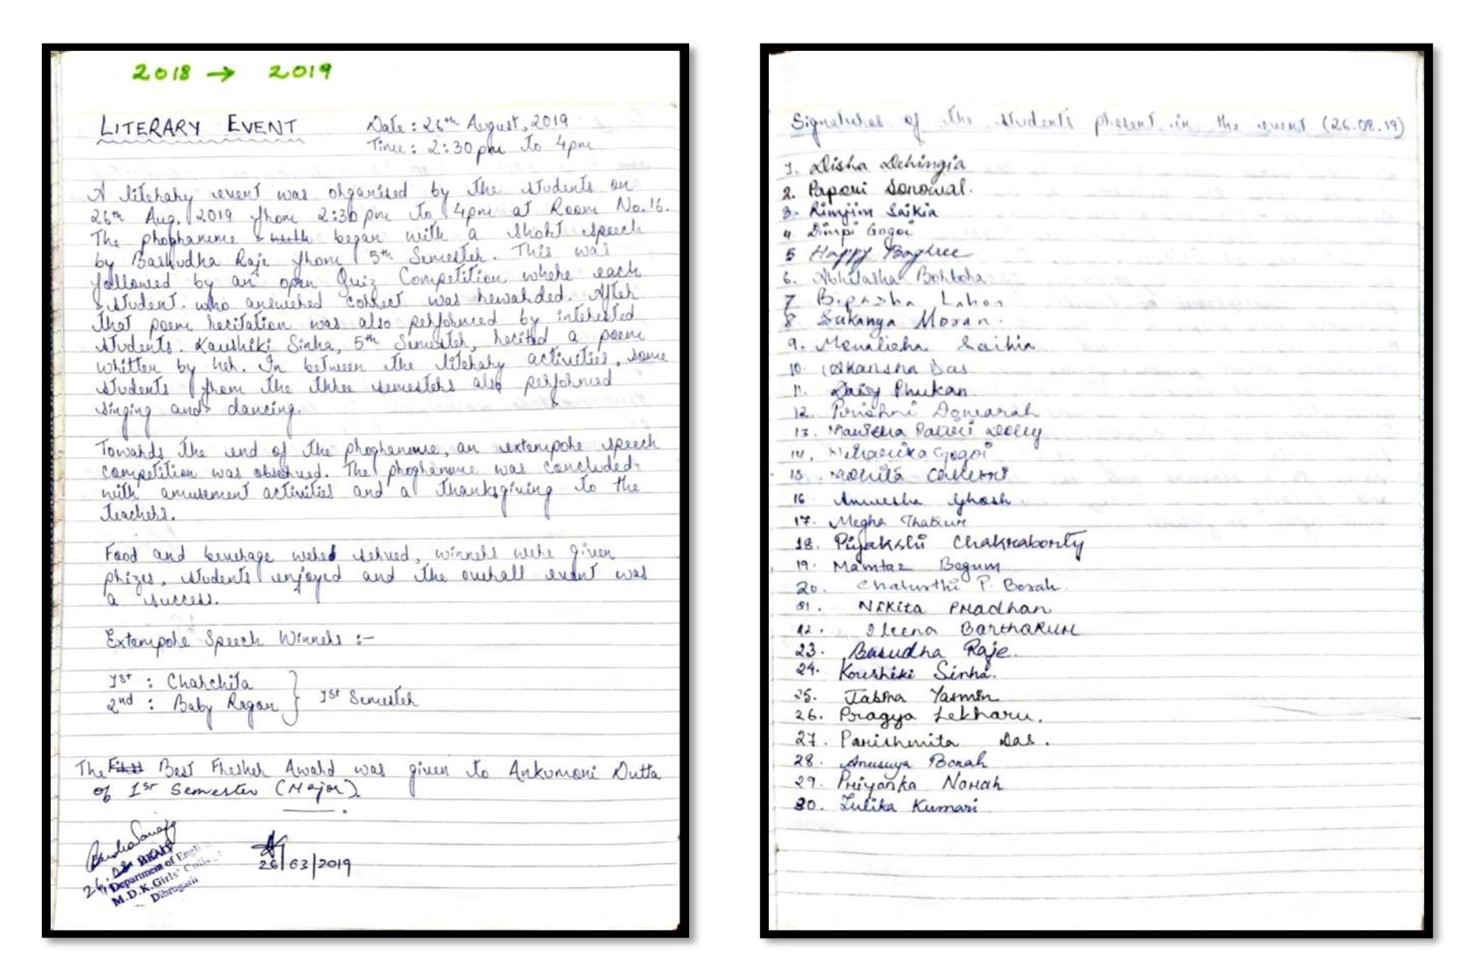 2018 → 2019
LITERARY EVENT
Date: 26th August, 2019
Time: 2:30pm to 4pm
A literary event was organised by the students on
26th Aug. 2019 from 2:30pm to 4pm at Room No.16.
The programme began with a short speech
by Bashudha Raje from 5th Semester. This was
followed by an open Quiz Competition where each
student who answered correct was rewarded. After
that poem recitation was also performed by interested
students. Kaushiki Sinha, 5th Semester, recited a poem
whitten by her. In between the literary activities, some
students from the three semesters also performed
singing and dancing.
Towards the end of the programme, an extempore speech
competition was observed. The programme was concluded
with amusement activities and a thanksgiving to the
teachers.
Food and beverage were served, winners were given
prizes, students enjoyed and the overall event was
a success.
Extempore Speech Winners :-
1st : Charchita
2nd : Baby Rogan } 1st Semester
The Best Fresher Award was given to Ankumoni Dutta
of 1st Semester (Major)
Department of
M.D.K. Girls'
Dibrugarh
26/03/2019
Signatures of the students present in the event (26.08.19)
1. Disha Dehingia
2. Papori Sonowal.
3. Rimjim Saikia
4. Dimpi Gogoi
5 Happy Baghee
6. Abhilasha Borbora
7 Bipasha Lahon
8 Sukanya Moran.
9. Monalisha Saikia
10. Akansha Das
11. Daisy Phukan
12. Dowarah
13. Manisha Patiri Dolley
14. Gogoi
15.
16 Anwesha Ghosh
17. Megha Thakur
18. Piyakshi Chakraborty
19. Mamtaz Begum
20. Chaturthi P. Borah
21. Nikita Pradhan
22. Barthakur
23. Basudha Raje.
24. Koushiki Sinha.
25. Tabina Yasmin
26. Pragya Lekharu.
27. Parishmita Das.
28. Anusuya Borah
29. Priyanka Norah
30. Zulika Kumari